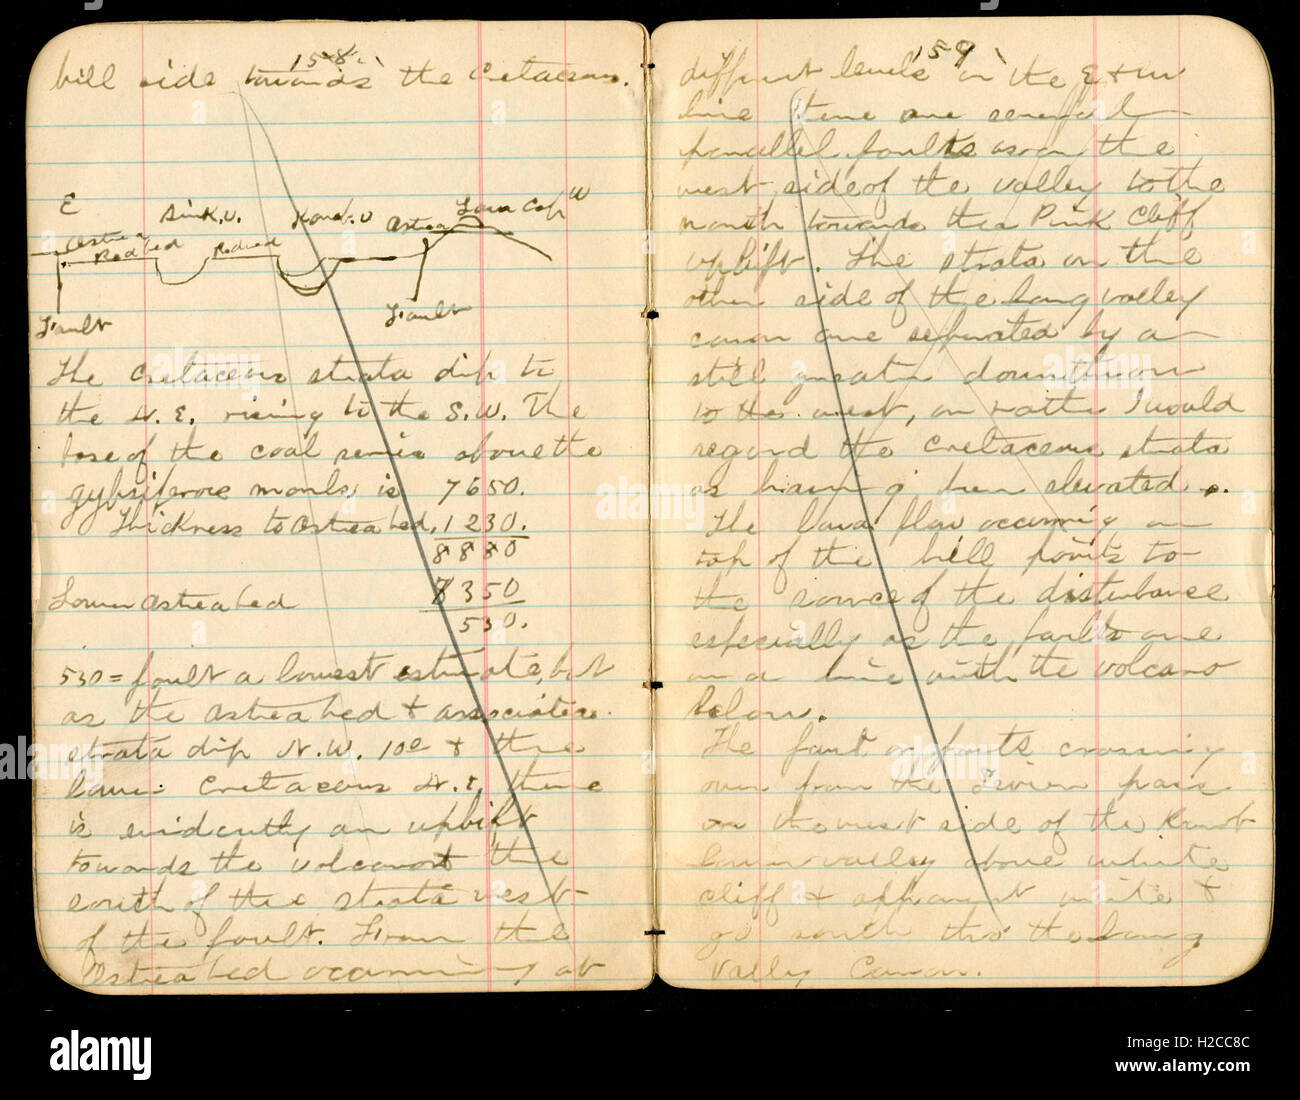 158.
hill side towards the Cretaceous.
E
Sink.V.
Kanab.V
Astrea
Lava Cap W
Astrea
Redbed
Redbed
Fault
Fault
The Cretaceous strata dip to
the N.E. rising to the S.W. The
base of the coal series above the
gypsiferous marls is 7650.
Thickness to Ostrea bed, 1230.
8880
Lower Ostrea bed 8350
530.
530 = fault a lowest estimate, but
as the Ostrea bed & associated
strata dip N.W. 10° & the
lower Cretaceous N.E, there
is evidently an uplift
towards the volcano the
south of the strata west
of the fault. From the
Ostrea bed occurring at
159
different levels in the E & W
line there are several
parallel faults as on the
west side of the valley to the
north towards the Pink Cliff
uplift. The strata on the
other side of the Long valley
canon are separated by a
still greater downthrow
to the west, or rather I would
regard the Cretaceous strata
as having been elevated.
The lava flow occurring on
top of the hill points to
the source of the disturbance
especially as the faults are
in a line with the volcano
below.
The fault or faults crossing
over from the Sevier pass
on the west side of the Kanab
lower valley above white
cliff & appear white &
go south thro the Long
Valley Canon.
alamy
Image ID: H2CC8C
www.alamy.com